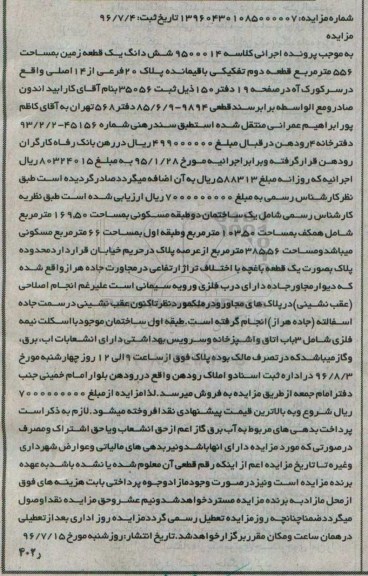 شماره مزایده: ۱۳۹۶۰۴۳۰۱۰۸۵۰۰۰۰۰۷ تاریخ ثبت: ۹۶/۷/۴
مزایده
به موجب پرونده اجرائی کلاسه ۹۵۰۰۰۱۴ شش دانگ یک قطعه زمین بمساحت
۵۵۶ مترمربع قطعه دوم تفکیکی باقیمانده پلاک ۲۰ فرعی از ۱۴ اصلی واقع
در سرکورک آه در صفحه ۱۹ دفتر ۱۵۰ ذیل ثبت ۳۵۰۵۶ بنام آقای کارابید اندون
صادر ومع الواسطه برابر سند قطعی ۹۸۹۴-۸۵/۶/۹ دفتر ۵۶۸ تهران به آقای کاظم
پور ابراهیم عمرانی منتقل شده است طبق سند رهنی شماره ۴۵۱۵۶-۹۳/۲/۲
دفترخانه ۴ رودهن در قبال مبلغ ۴۹۹۰۰۰۰۰۰ ریال در رهن بانک رفاه کارگران
رودهن قرار گرفته و برابر اجرائیه مورخ ۹۵/۱/۲۸ به مبلغ ۸۰۳۲۴۰۱۵ ریال
اجرائیه که روزانه مبلغ ۵۸۸۳۱۳ ریال به آن اضافه میگردد صادر گردیده است طبق
نظر کارشناس رسمی به مبلغ ۷۰۰۰۰۰۰۰۰۰ ریال ارزیابی شده است طبق نظریه
کارشناس رسمی شامل یک ساختمان دو طبقه مسکونی بمساحت ۱۶۹۵۰ مترمربع
شامل همکف بمساحت ۱۰۳۵۰ مترمربع وطبقه اول بمساحت ۶۶ مترمربع مسکونی
میباشد ومساحت ۳۸۵۵۶ مترمربع از عرصه پلاک در حریم خیابان قرار دارد محدوده
پلاک بصورت یک قطعه باغچه با اختلاف تراز ارتفاعی در مجاورت جاده هراز واقع شده
که دیوار مجاور جاده دارای درب فلزی و رویه سیمانی است علیرغم انجام اصلاحی
(عقب نشینی) در پلاک های مجاور و در ملک مورد نظر تاکنون عقب نشینی در سمت جاده
اسفالته (جاده هراز) انجام گرفته است. طبقه اول ساختمان موجود با اسکلت نیمه
فلزی شامل ۳ باب اتاق و آشپزخانه و سرویس بهداشتی دارای انشعابات آب، برق،
و گاز میباشد که در تصرف مالک بوده پلاک فوق از ساعت ۹ الی ۱۲ روز چهارشنبه مورخ
۹۶/۸/۳ در اداره ثبت اسناد و املاک رودهن واقع در رودهن بلوار امام خمینی جنب
دفتر امام جمعه از طریق مزایده به فروش میرسد. لذا مزایده از مبلغ ۷۰۰۰۰۰۰۰۰۰
ریال شروع و به بالاترین قیمت پیشنهادی نقدا فروخته میشود. لازم به ذکر است
پرداخت بدهی های مربوط به آب برق گاز اعم از حق انشعاب و یا حق اشتراک و مصرف
در صورتی که مورد مزایده دارای انها باشد و نیز بدهی های مالیاتی و عوارض شهرداری
و غیره تا تاریخ مزایده اعم از اینکه رقم قطعی آن معلوم شده یا نشده باشد به عهده
برنده مزایده است و نیز در صورت وجود مازاد وجوه پرداختی بابت هزینه های فوق
از محل مازاد به برنده مزایده مسترد خواهد شد و نیم عشر و حق مزایده نقدا وصول
میگردد ضمنا چنانچه روز مزایده تعطیل رسمی گردد مزایده روز اداری بعد از تعطیلی
در همان ساعت و مکان مقرر برگزار خواهد شد. تاریخ انتشار: روز شنبه مورخ ۹۶/۷/۱۵
ر۴۰۲